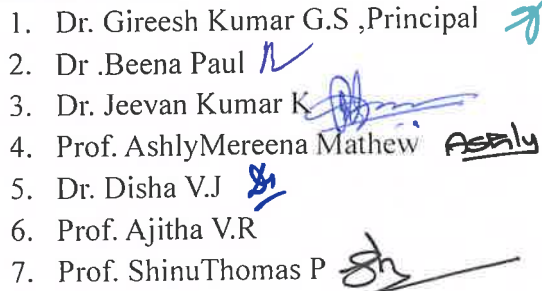 1. Dr. Gireesh Kumar G.S ,Principal
2. Dr .Beena Paul
3. Dr. Jeevan Kumar K
4. Prof. AshlyMereena Mathew Ashly
5. Dr. Disha V.J
6. Prof. Ajitha V.R
7. Prof. ShinuThomas P